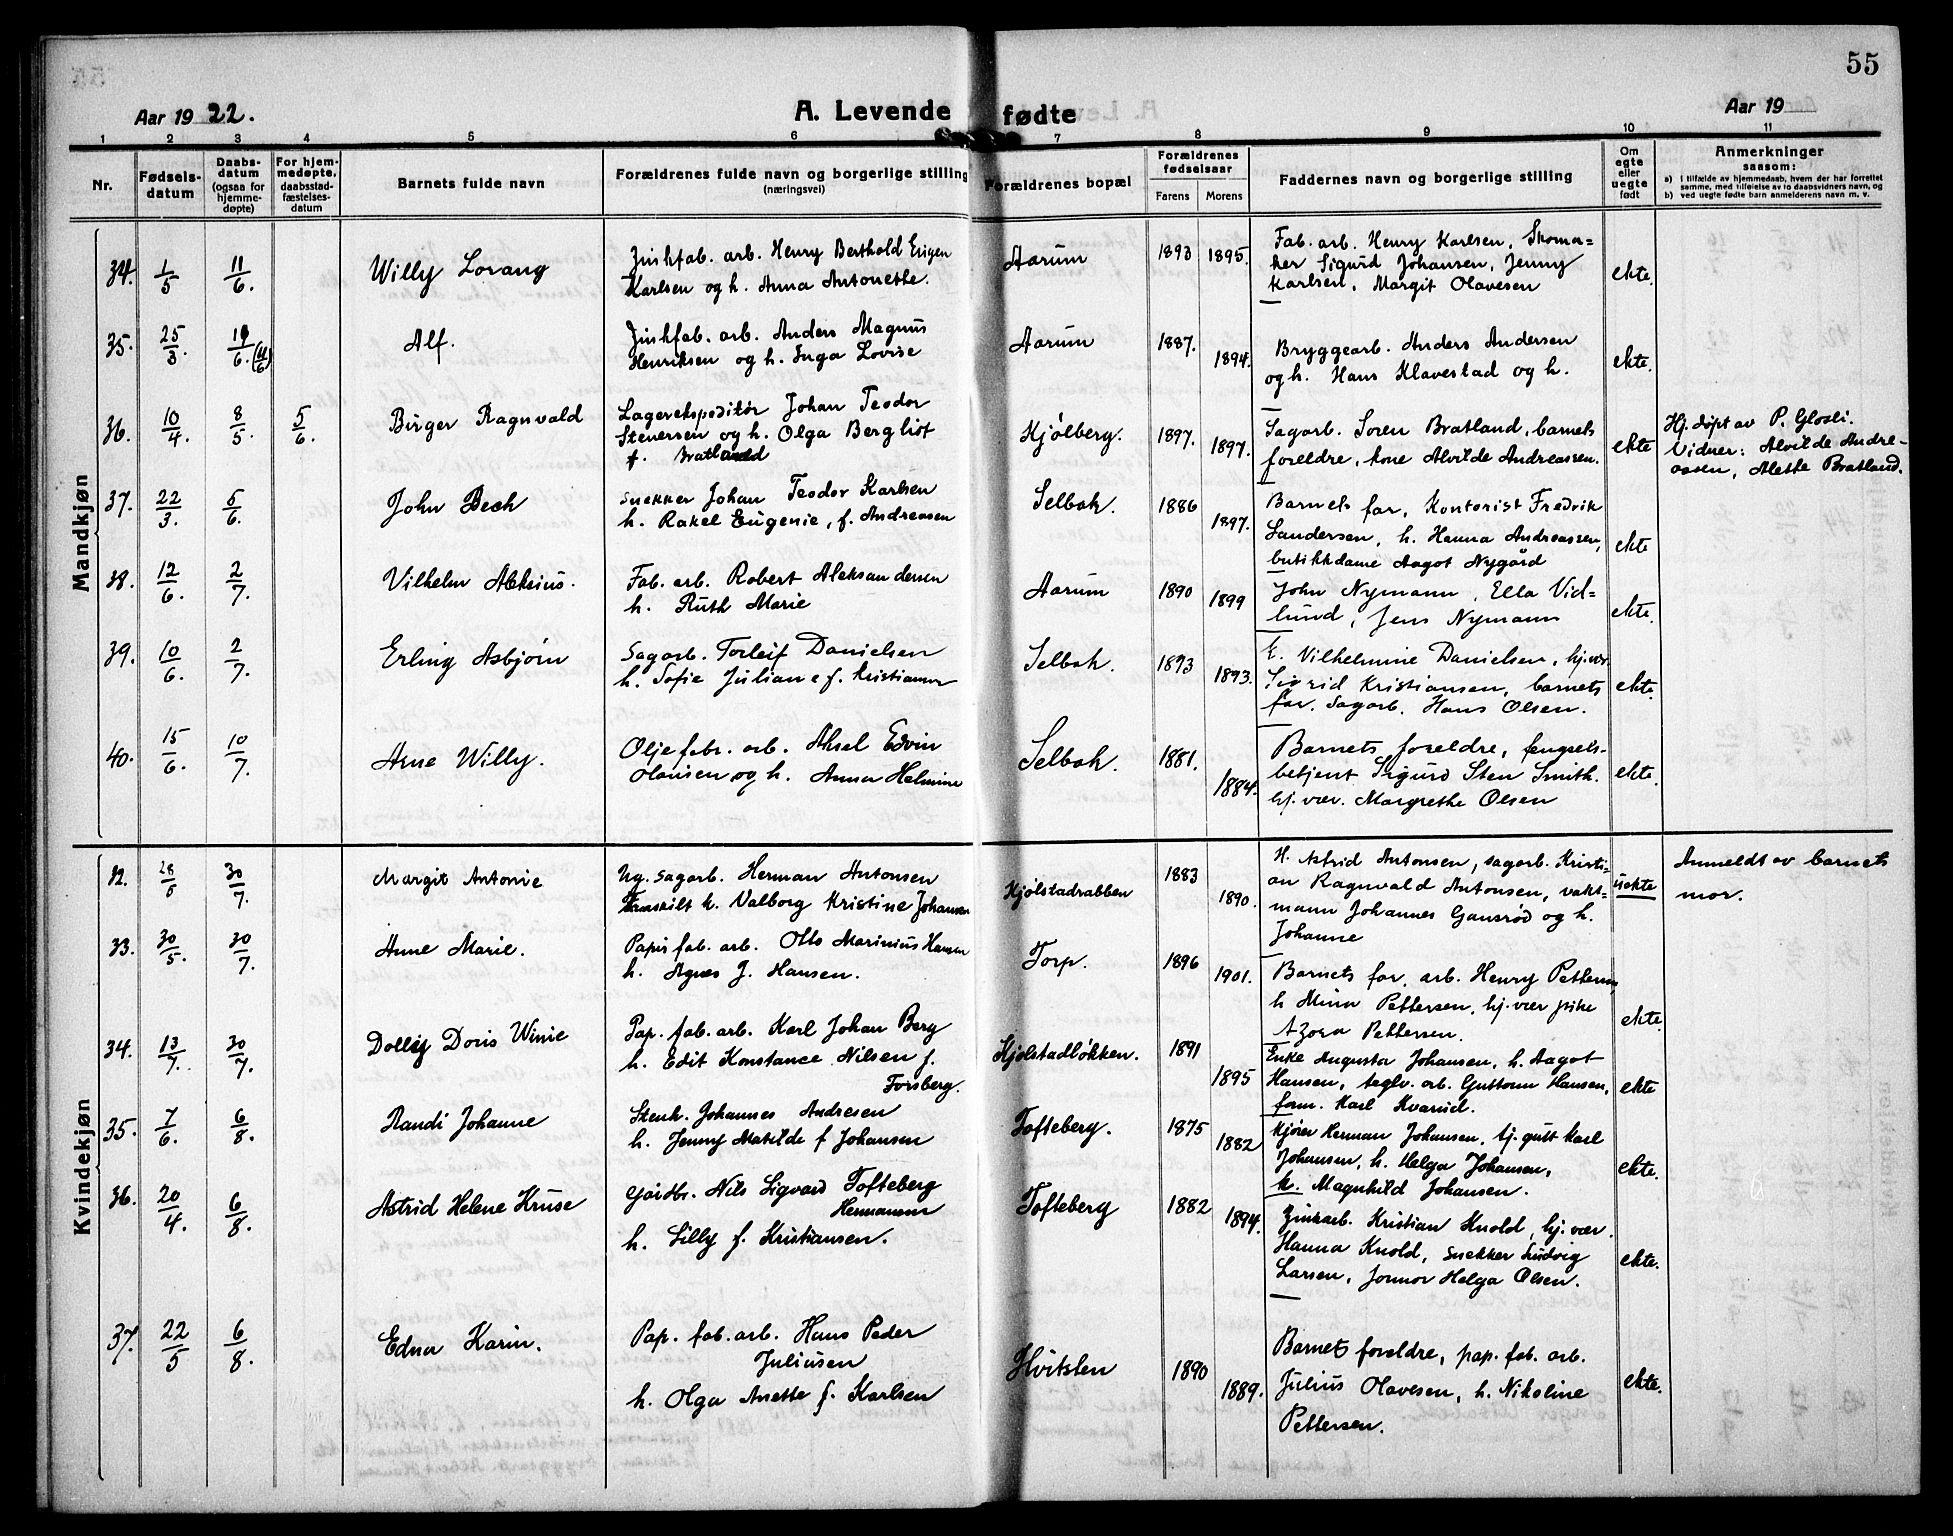 55
Aar 1922.
A. Levende fødte
Aar 19
1 2 3 4 5 6 7 8 9 10 11
Nr.
Fødsels-
datum
Daabs-
datum
(ogsaa for
hjemme-
døpte)
For hjem-
medøpte,
daabsstad-
fæstelses-
datum
Barnets fulde navn
Forældrenes fulde navn og borgerlige stilling
(næringsvei)
Forældrenes bopæl
Forældrenes
fødselsaar
Farens Morens
Faddernes navn og borgerlige stilling
Om
egte
eller
uegte
født
Anmerkninger
saasom:
a) i tilfælde av hjemmedaab, hvem der har forrettet
samme, med tilføielse av to daabsvidners navn, og
b) ved uegte fødte barn anmelderens navn m. v.
Mandkjøn
34. 1/5 11/6. Willy Lorang
Zinkfab. arb. Henry Berthold Eugen
Karlsen og h. Anna Antonette.
Aarum 1893 1895.
Fab. arb. Henry Karlsen, Skoma=
ker Sigurd Johansen, Jenny
Karlsen, Margit Olavesen
ekte.
35. 25/3. 6. (11/6) Alf.
Zinkfab. arb. Anders Magnus
Henriksen og h. Inga Lovise
Aarum 1887. 1894.
Bryggearb. Anders Andersen
og h. Hans Klavestad og h.
ekte.
36. 10/4. 8/5. 5/6. Birger Ragnvald
Lagerekspeditør Johan Teodor
Stenersen og h. Olga Bergliot
f. Bratland
Kjølberg. 1897. 1897.
Sagarb. Soren Bratland, barnets
foreldre, kone Alvilde Andreassen.
ekte
Hj. døpt av P. Glosli.
Vidner: Alvilde Andre-
assen, Alette Bratland.
37. 22/3. 5/6. John Bech
Snekker Johan Teodor Karlsen
h. Rakel Eugenie, f. Andreasen
Selbak. 1886 1897.
Barnets far, Kontorist Fredrik
Sandersen, h. Hanna Andreassen,
butikkdame Aagot Nygård
ekte
38. 12/6. 2/7. Vilhelm Aleksius.
Fab. arb. Robert Aleksandersen
h. Ruth Marie
Aarum 1890 1899
John Nymann, Ella Vid=
lund, Jens Nymann
ekte.
39. 10/6. 2/7. Erling Asbjørn
Sagarb. Torleif Danielsen
h. Sofie Juliane f. Kristiansen
Selbak. 1893 1893.
E. Vilhelmine Danielsen, hj.vær.
Sigrid Kristiansen, barnets
far, Sagarb. Hans Olsen.
ekte.
40. 15/6. 10/7. Arne Willy.
Oljefabr. arb. Aksel Edvin
Olaussen og h. Anna Helmine
Selbak. 1881. 1884.
Barnets foreldre, fengsels-
betjent Sigurd Sten Smith.
hj. vær. Margrethe Olsen
ekte.
Kvindekjøn
32. 28/5 30/7. Margit Antonie
Ug. sagarb. Herman Antonsen
Fraskilt h. Valborg Kristine Johansen
Kjølstadrabben 1883 1890.
H. Astrid Antonsen, sagarb. Kristi-
an Ragnvald Antonsen, vakt-
mann Johannes Gansrød og h.
Johanne
uekte
Anmeldt av barnets
mor.
33. 30/5. 30/7. Anne Marie.
Papir fab. arb. Otto Marinius Hansen
h. Agnes J. Hansen.
Torp. 1896 1901.
Barnets far, arb. Henry Pettersen,
h. Mina Pettersen, hj. vær pike
Azora Pettersen.
ekte.
34. 13/7. 30/7. Dolly Doris Winie
Pap. fab. arb. Karl Johan Berg
h. Edit Konstance Nilsen f.
Forsberg.
Kjølstadløkken. 1891 1895
Enke Augusta Johansen, h. Aagot
Hansen, teglv. arb. Guttorm Hansen,
form. Karl Kvarud.
ekte.
35. 7/6. 6/8. Randi Johanne
Stenh. Johannes Andresen
h. Jenny Matilde f Johansen
Tofteberg. 1875 1882
Kjører Herman Johansen, tj. gutt Karl
Johansen, h. Helga Johansen,
k. Magnhild Johansen.
ekte.
36. 20/4. 6/8. Astrid Helene Kruse
Gårdbr. Nils Sigvard Tofteberg
Hermansen
h. Lilly f. Kristiansen.
Tofteberg 1882 1894.
Zinkarb. Kristian Knold, hj. vær.
Hanna Knold, snekker Ludvig
Larsen, Jonnor Helga Olsen.
ekte.
37. 22/5 6/8. Edna Karin.
Pap. fab. arb. Hans Peder
Juliusen
h. Olga Anette f. Karlsen
Hvitsten 1890 1889.
Barnets foreldre, pap. fab. arb.
Julius Olavesen, h. Nikoline
Pettersen.
ekte.